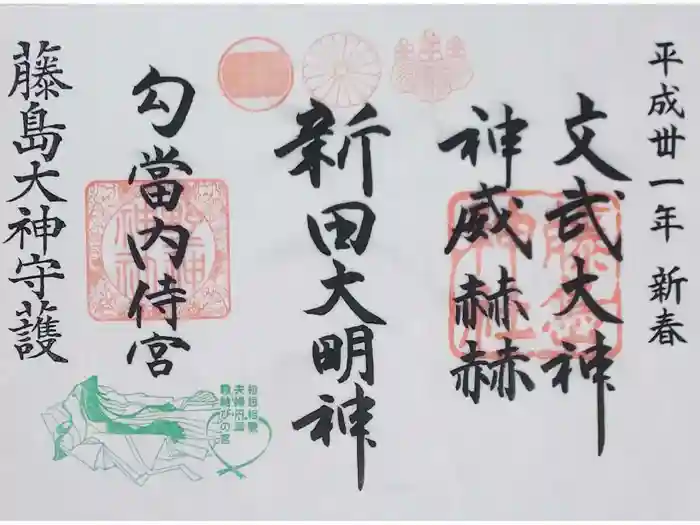 平成丗一年 新春
文武大神
神威赫赫
新田大明神
勾當内侍宮
藤島大神守護
藤島神社
相思相愛
夫婦円満
縁結びの宮